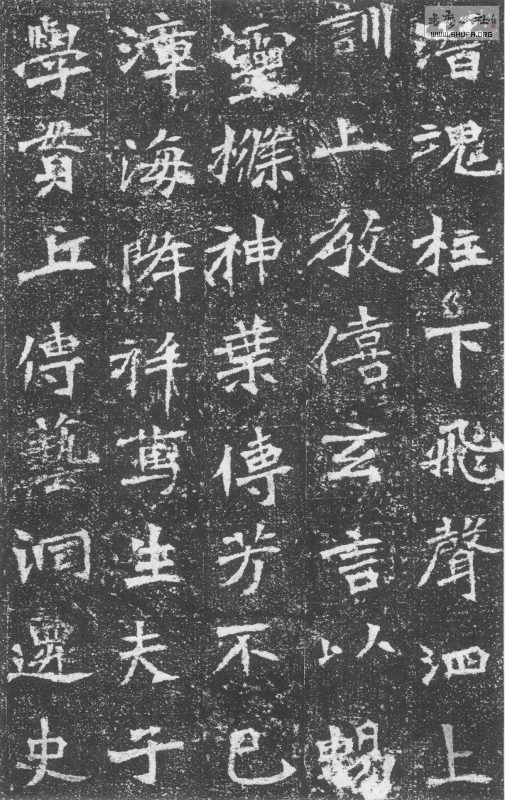 WWW.SHUFA.ORG
魂柱下飛聲泗上
訓上僖玄言以暢
靈條神葉傳芳不已
漳海降祥篤生夫子
學貫丘傳藝洞遷史